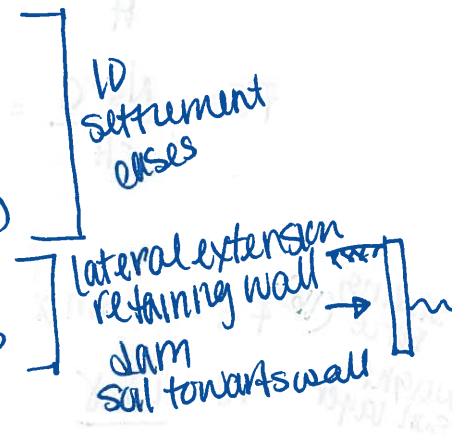 1D
settlement
cases
lateral extension
retaining wall
dam
soil towards wall